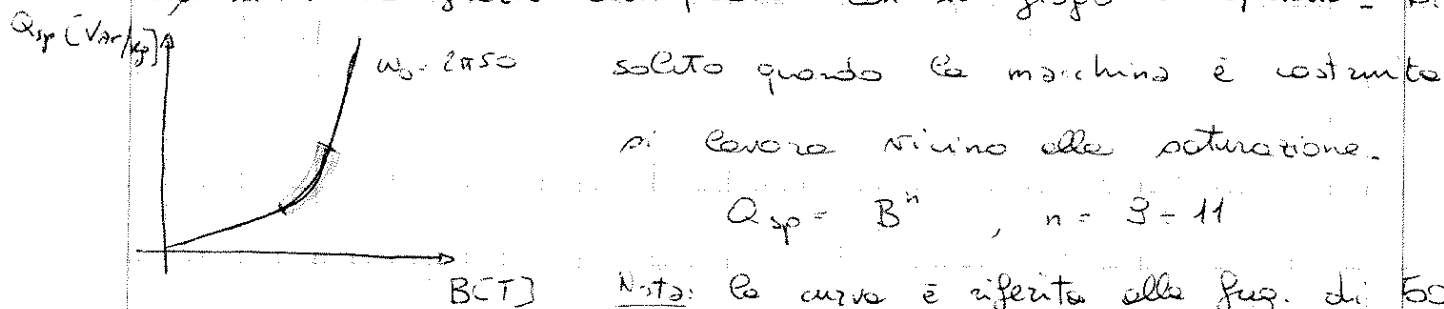 con
Qsp [VAr/kg]
ω₀ = 2π50
solito quando la macchina è costruita
si lavora vicino alla saturazione.
Qsp = Bⁿ , n = 9 ÷ 11
B[T]
Nota: la curva è riferita alla freq. di 50